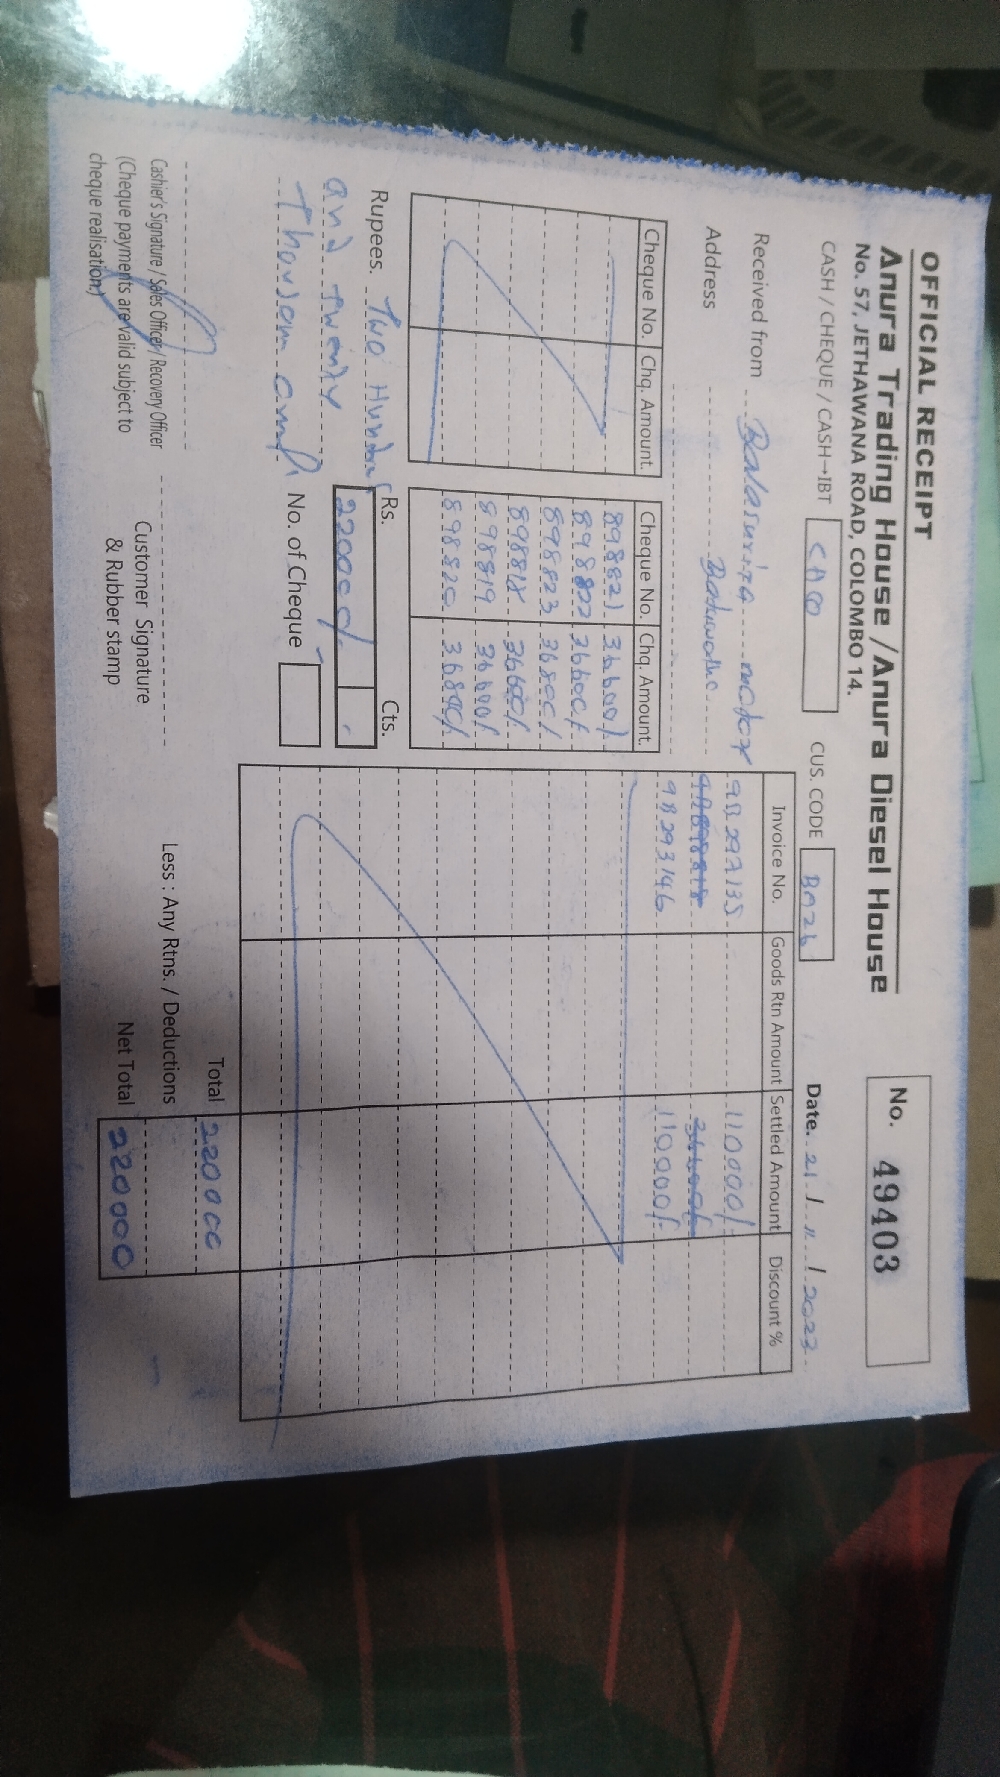 OFFICIAL RECEIPT
Anura Trading House / Anura Diesel House
No. 57, JETHAWANA ROAD, COLOMBO 14.
No. 49403
CASH / CHEQUE / CASH→IBT
CUS. CODE BA26
Date. 21 / 11 / 2023
Received from Balasuriya motor
Address
Cheque No. Chq. Amount.
Cheque No. Chq. Amount.
898821 36600/
898822 36600/
898823 36800/
898818 36600/
898819 36600/
898820 36800/
Rupees. Two Hundred
and Twenty
Thousand only
Rs. Cts.
220000/.
No. of Cheque
Invoice No. Goods Rtn Amount Settled Amount Discount %
98292135 110000/
98293146 110000/
Total 220000
Less : Any Rtns. / Deductions
Net Total 220000
Cashier's Signature / Sales Officer / Recovery Officer
(Cheque payments are valid subject to
cheque realisation.)
Customer Signature
& Rubber stamp